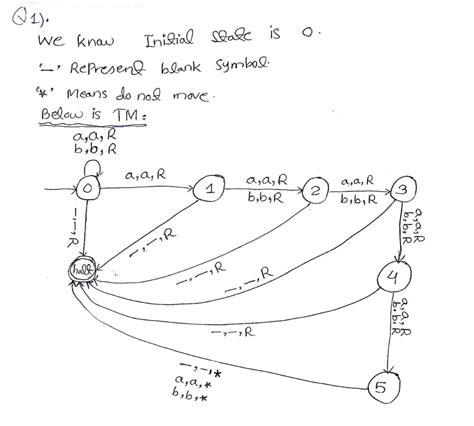 Q1).
We know Initial state is 0.
'_' Represent blank symbol.
'*' Means do not move.
Below is TM:
a,a,R
b,b,R
0
a,a,R
1
a,a,R
b,b,R
2
a,a,R
b,b,R
3
_,_,R
_,_,R
a,a,R
b,b,R
halt
_,_,R
_,_,R
4
_,_,R
a,a,R
b,b,R
_,_,*
a,a,*
b,b,*
5